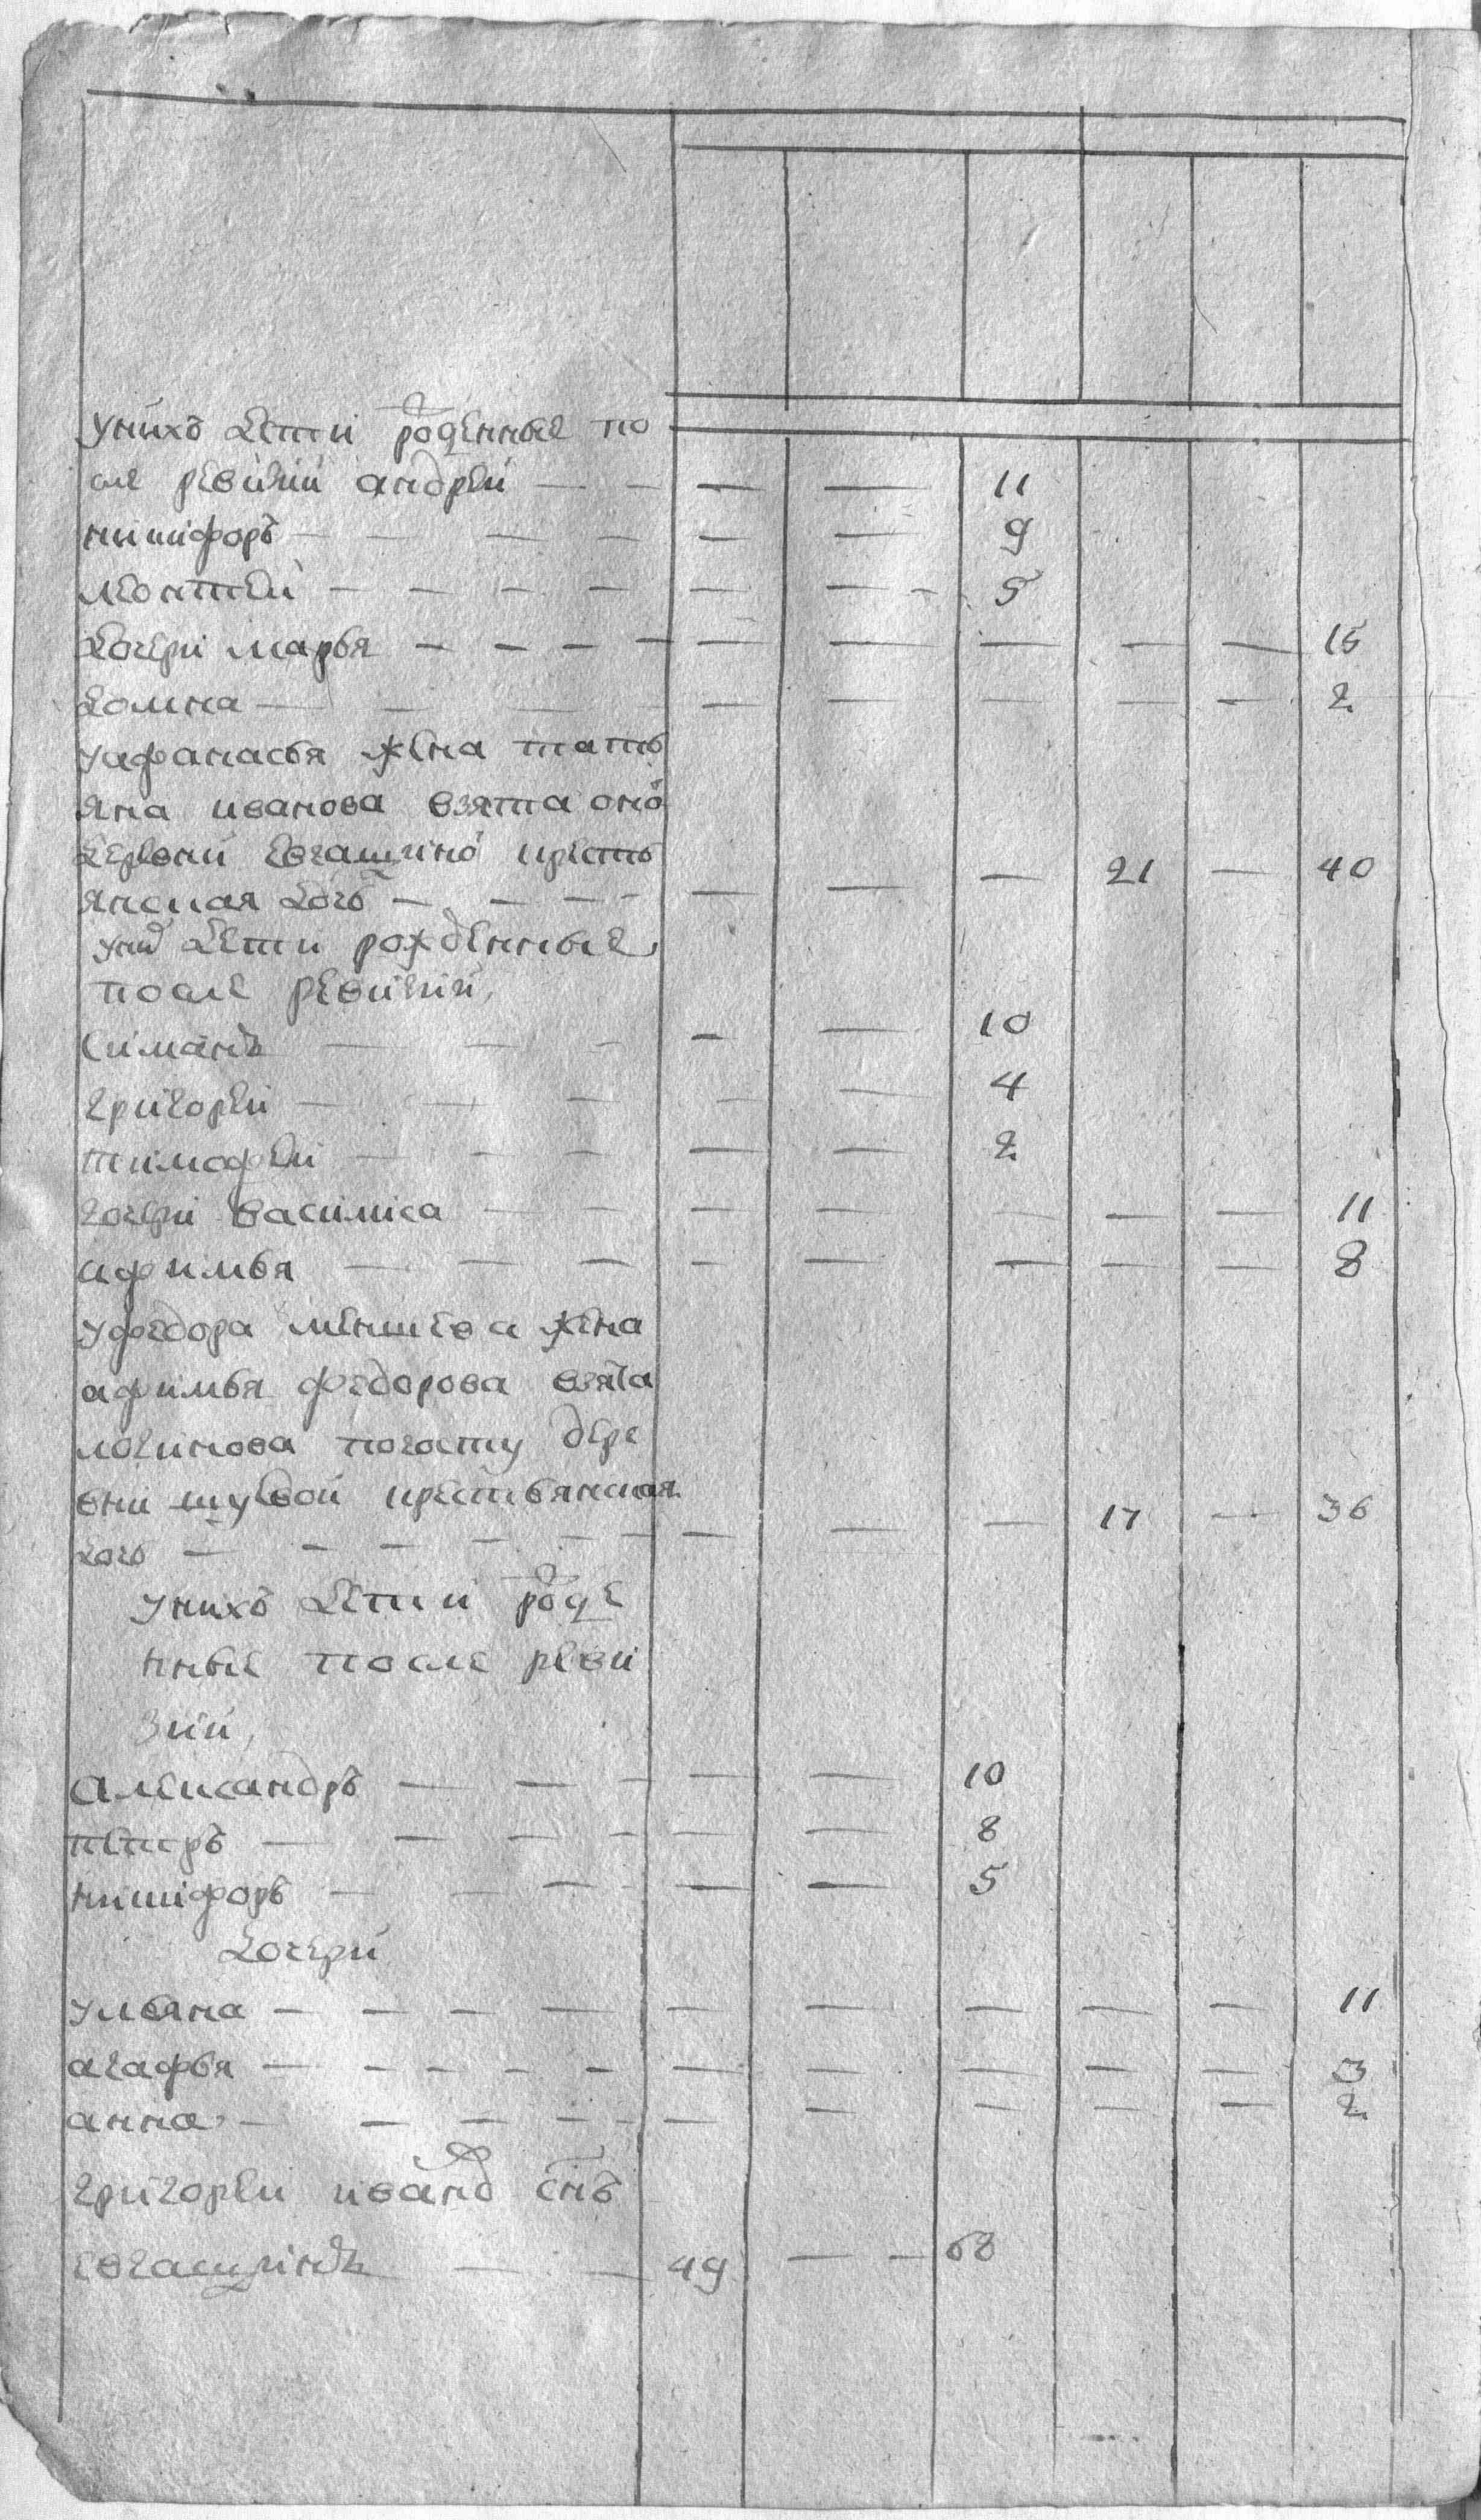 у нихъ дети рожденные по
сле ревизии андрей — — — — 11
никифоръ — — — — — — 9
леонтей — — — — — — — 5
дочери марья — — — — — — — — — 15
домна — — — — — — — — — 2
у афанасья жена тать
яна иванова взята оно
деревни евгащино кресть
янская дочь — — — — — — — 21 — 40
у них дети рожденные
после ревизии,
симанъ — — — — — 10
григорей — — — — — 4
тимофей — — — — — 2
дочери василиса — — — — — — — 11
афимья — — — — — — — — 8
у федора меншева жена
афимья федорова взята
логинова погосту дере
вни шуевой крестьянская
дочь — — — — — — — — — 17 — 36
у нихъ дети рожде
нные после реви
зии,
александръ — — — — — 10
петръ — — — — — — 8
никифоръ — — — — — 5
дочери
ульяна — — — — — — — — — 11
агафья — — — — — — — — — — 3
анна — — — — — — — — — 2
григорей иванов снъ
евгащинъ — — 49 — — 68